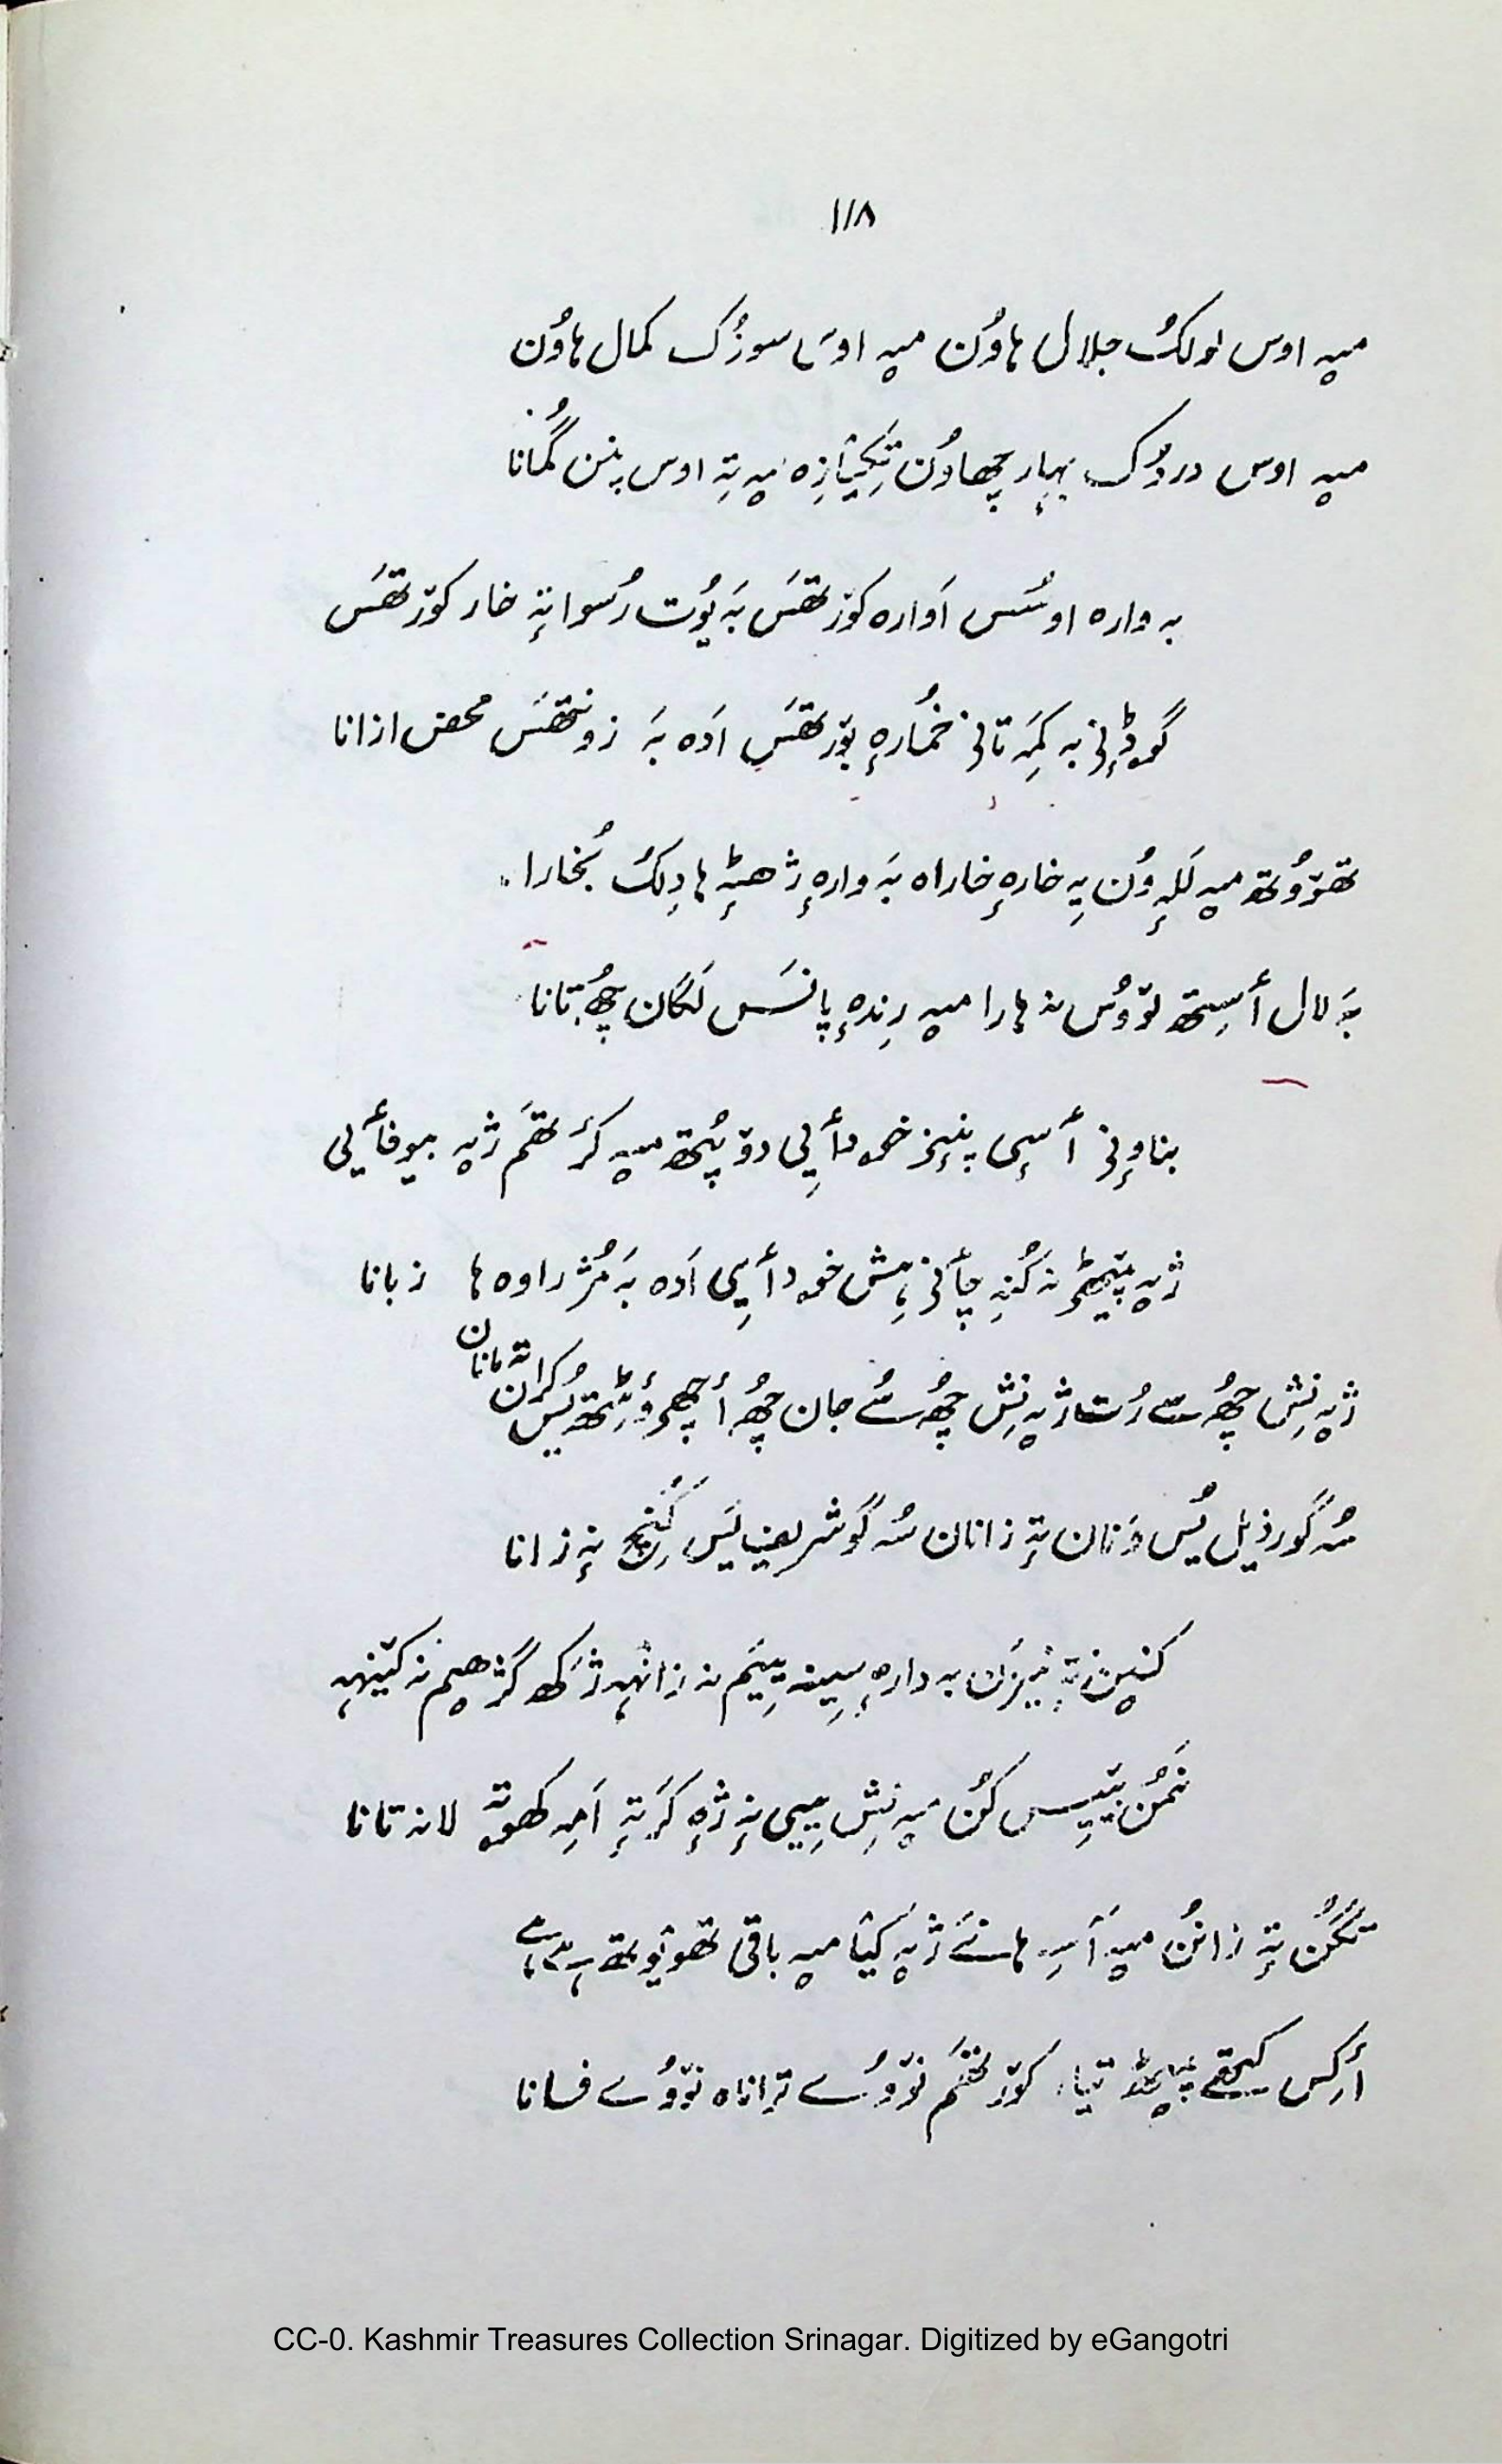 ۱۱۸
میہ اوس لولکُ جلال ہاوُن میہ اوس سوزُک کمال ہاوُن
میہ اوس دردُک بہار چھاوُن تِکیازِہ میہ تہٕ اوس پنن گُمانا
بہ وارہ اوسُس اَوارہ کوٚرتھَس بَہ یُوت رُسوا تہٕ خار کوٚرتھَس
گوڈنی بہ کمَہ تانی خُمارہٕ بوٚرتھَس اَدہ بَہ زونتھَس محض ازانا
تھوٚوُتھ میہ للہٕ وُن یہِ خارہٕ خاراہ بَہ وارہٕ ژھٹہٕ ہا دِلکُ بُخارا
بَہ لال أسِتھ لوٚوُس نہ ہارا میہ رِندہٕ پانسَس لَگان چھُ تانا
بناونی أسی پنٕنز خودأیی دوٚپُتھ میہ کرٔتھَم ژیہ بیوفأیی
ژیہ پیٹھ نہ کُنہِ چأنی ہِش خودأیی اَدہ بَہ مُژراوہ ہا زبانا
ژیہ نِش چھُ سے رُت ژیہ نِش چھُ سُے جان چھُ أچھ وٕٹِتھ یُس کران تہ مانان
سُہ گور ذیل یُس وَنان تہٕ زانان سُہ گو شریف یَس کُنِح نہٕ زانا
کنیٖن تہٕ بہ دارہٕ سینہ یِیَم نہ زانہہ ژکھ گژھیم نہ کینہہ
نَمُن پیٚیِس کُن میہ نِش یِیی نہٕ ژٕہ کَر تہٕ اَمہِ کھوتہٕ لانہ تانا
تگُن تہٕ زانُن میہ أسہِ ہانَے ژیہ کیَا میہ باقی تھوٚیُوتھ
أرکِس پیٹھ کوٚرتھَم نوٚوُے تراناہ نوٚوُے فسانا
CC-0. Kashmir Treasures Collection Srinagar. Digitized by eGangotri